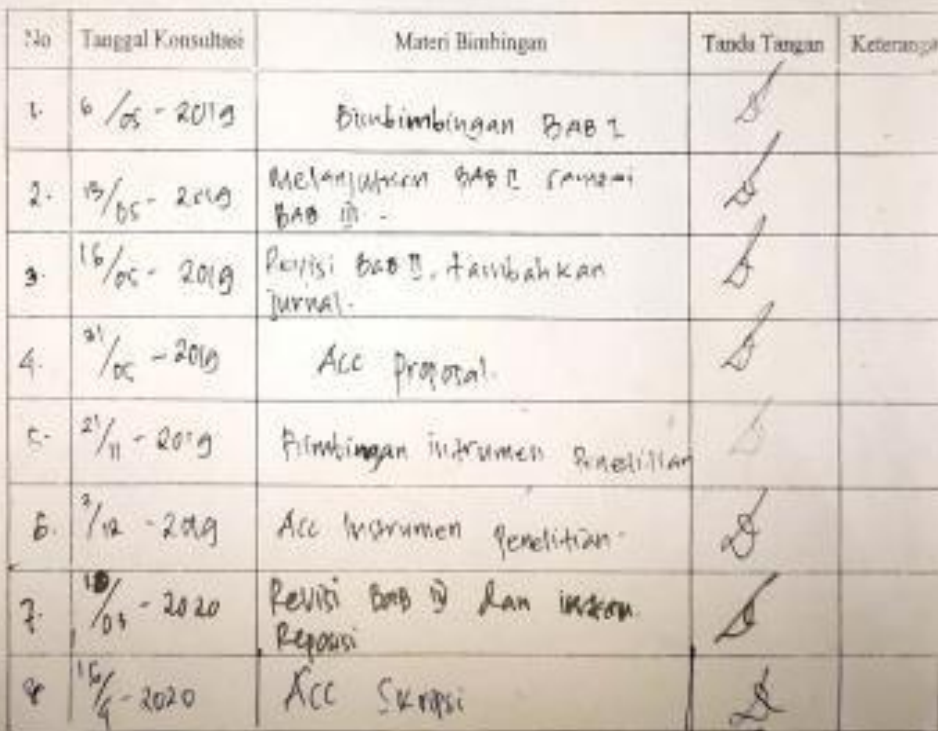 No Tanggal Konsultasi Materi Bimbingan Tanda Tangan Keterangan
1. 6/05 - 2019 Bimbimbingan BAB I
2. 13/05 - 2019 Melanjutkan BAB II sampai
BAB III.
3. 16/05 - 2019 Revisi BAB II, tambahkan
Jurnal.
4. 31/05 - 2019 Acc Proposal.
5. 21/11 - 2019 Bimbingan instrumen Penelitian
6. 3/12 - 2019 Acc Instrumen Penelitian
7. /03 - 2020 Revisi BAB IV dan
8 15/4 - 2020 Acc Skripsi